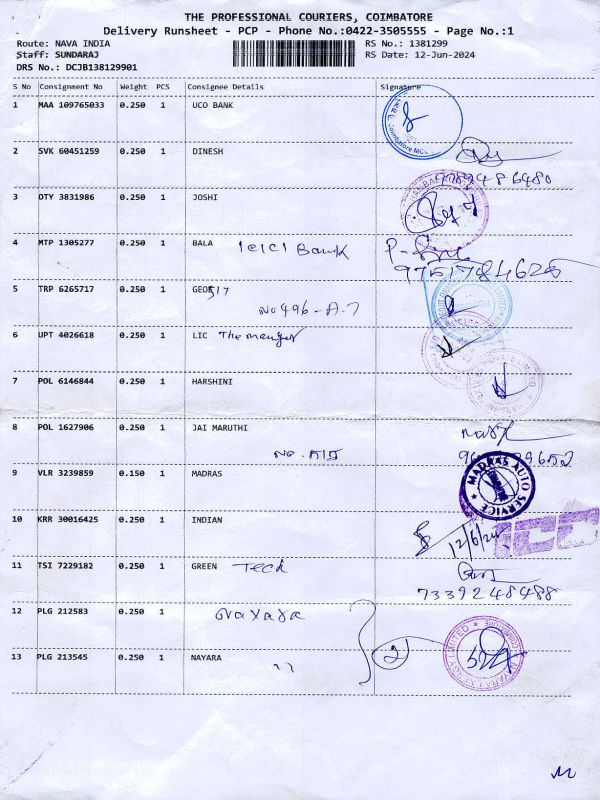 THE PROFESSIONAL COURIERS, COIMBATORE
Delivery Runsheet - PCP - Phone No.:0422-3505555 - Page No.:1
Route: NAVA INDIA
RS No.: 1381299
Staff: SUNDARAJ
RS Date: 12-Jun-2024
DRS No.: DCJB138129901
S No Consignment No Weight PCS Consignee Details Signature
1 MAA 109765033 0.250 1 UCO BANK
2 SVK 60451259 0.250 1 DINESH
9789486480
3 OTY 3831986 0.250 1 JOSHI
4 MTP 1305277 0.250 1 BALA ICICI Bank
9751784625
5 TRP 6265717 0.250 1 GEO517
No 496-A-7
6 UPT 4026618 0.250 1 LIC The manger
7 POL 6146844 0.250 1 HARSHINI
8 POL 1627906 0.250 1 JAI MARUTHI
9 VLR 3239859 0.150 1 MADRAS
MADRAS AUTO SERVICE
10 KRR 30016425 0.250 1 INDIAN
12/6/24
11 TSI 7229182 0.250 1 GREEN Tech
7339248488
12 PLG 212583 0.250 1 Nayara
2
13 PLG 213545 0.250 1 NAYARA